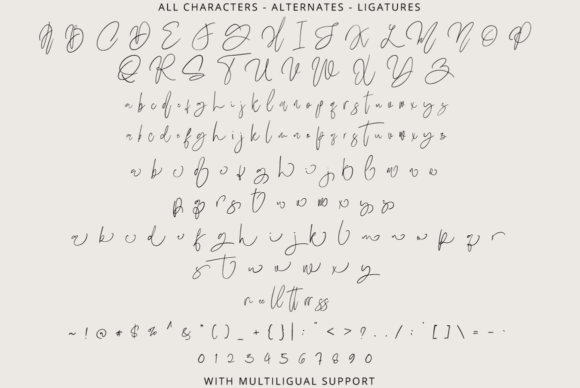 ALL CHARACTERS - ALTERNATES - LIGATURES
A B C D E F G H I J K L M N O P
Q R S T U V W X Y Z
a b c d e f g h i j k l m n o p q r s t u v w x y s
a b c d e f g h i j k l m n o p q r s t u v w x y s
a b c d e f g h i j k l m n o
p q r s t u v w x y z
a b c d e f g h i j k l m n o p q r
s t u v w x y
r ll tt rr ss
~ ! @ # $ % ^ & * ( ) _ + { } | : " < > ? . , / ; ' [ ] \ = - `
0 1 2 3 4 5 6 7 8 9 0
WITH MULTILIGUAL SUPPORT